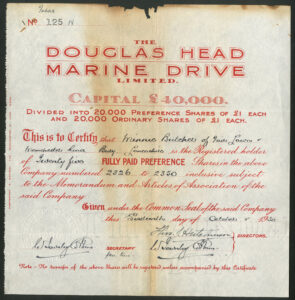 No 125 N
THE
DOUGLAS HEAD
MARINE DRIVE
LIMITED.
CAPITAL £40,000.
DIVIDED INTO 20,000 PREFERENCE SHARES OF £1 EACH
AND 20,000 ORDINARY SHARES OF £1 EACH.
This is to Certify that Minnie Butcher of
is the Registered holder
of Twenty five FULLY PAID PREFERENCE Shares in the above
Company numbered 2326 to 2350 inclusive subject
to the Memorandum and Articles of Association of the
said Company.
Given under the Common Seal of the said Company
this day of October
DIRECTORS.
SECRETARY
Note - No transfer of the above Shares will be registered unless accompanied by this Certificate.